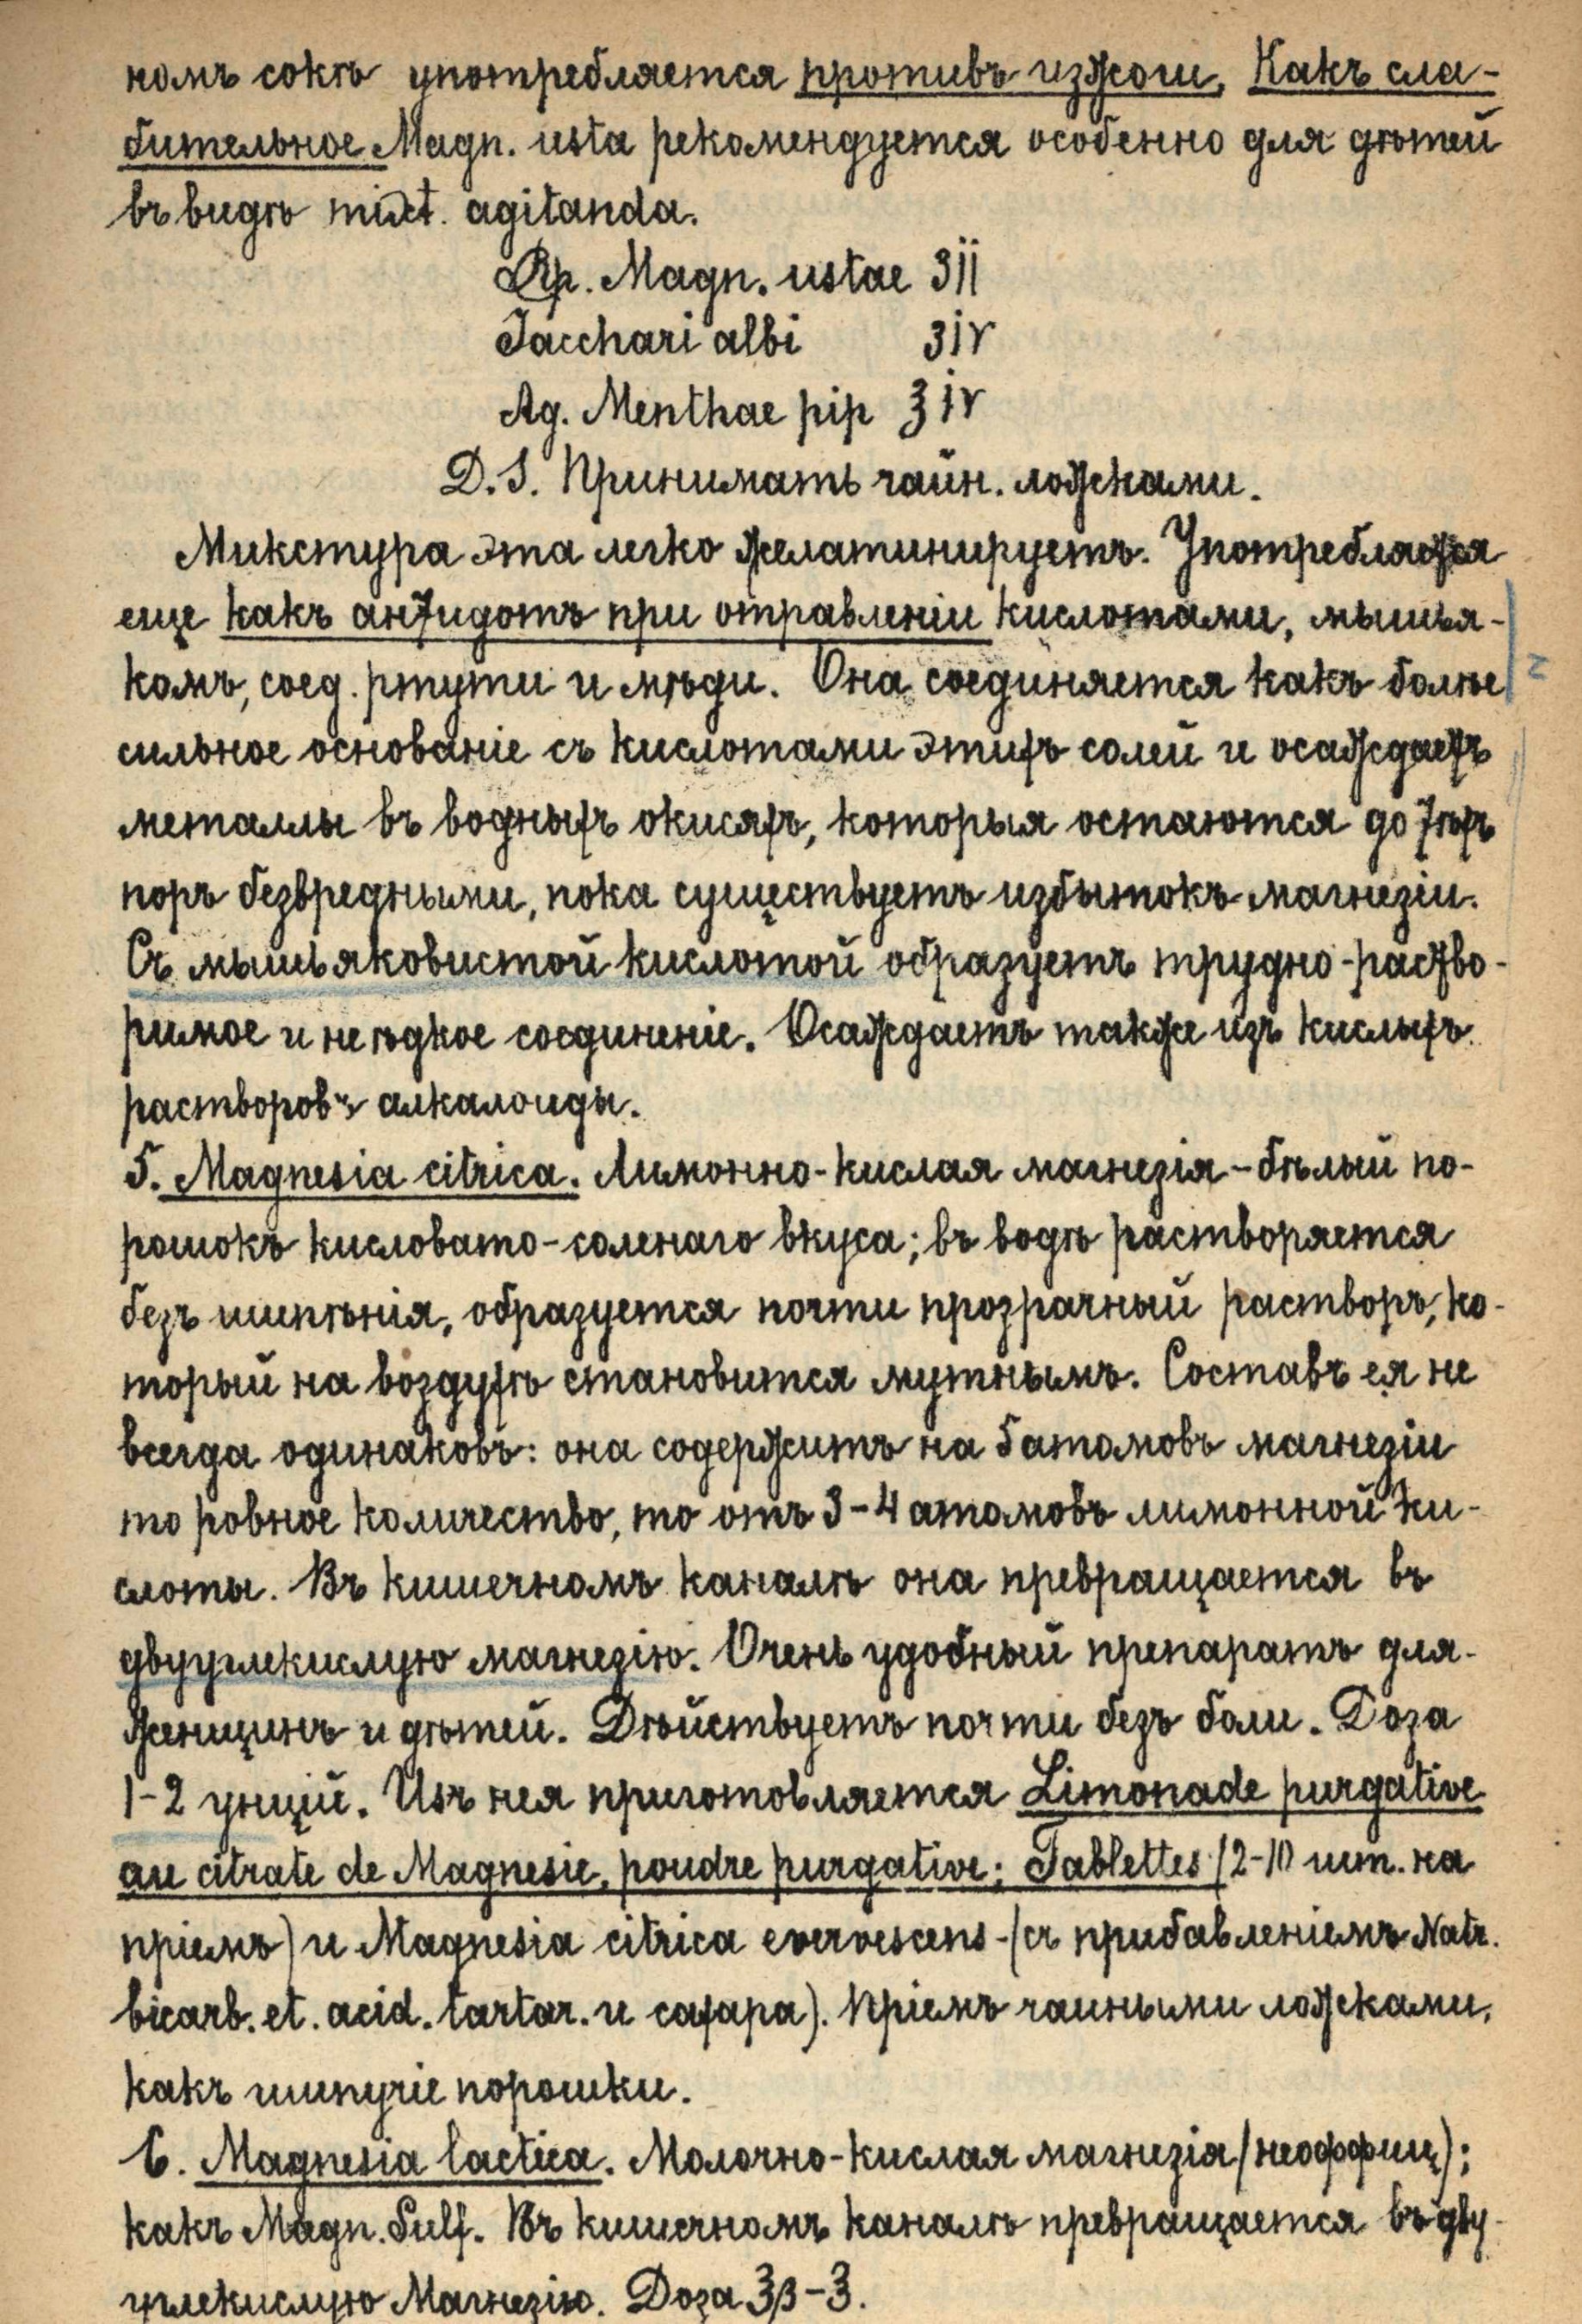 номъ сокѣ употребляется противъ изжоги, Какъ сла-
бительное Magn. usta рекомендуется особенно для дѣтей
въ видѣ mixt. agitanda.
Rp. Magn. ustae ʒii
Sacchari albi ʒiv
Aq. Menthae pip ℥iv
D.S. Принимать чайн. ложками.
Микстура эта легко желатинируетъ. Употребляется
еще какъ антидотъ при отравленіи кислотами, мышья-
комъ, соед. ртути и мѣди. Она соединяется какъ болѣе
сильное основаніе съ кислотами этихъ солей и осаждаетъ
металлы въ водныхъ окисяхъ, которыя остаются до тѣхъ
поръ безвредными, пока существуетъ избытокъ магнезіи.
Съ мышьяковистой кислотой образуетъ трудно-раство-
римое и не ѣдкое соединеніе. Осаждаетъ также изъ кислыхъ
растворовъ алкалоиды.
5. Magnesia citrica. Лимонно-кислая магнезія – бѣлый по-
рошокъ кисловато-соленаго вкуса; въ водѣ растворяется
безъ шипѣнія, образуется почти прозрачный растворъ, ко-
торый на воздухѣ становится мутнымъ. Составъ ея не
всегда одинаковъ: она содержитъ на 5 атомовъ магнезіи
то ровное количество, то отъ 3–4 атомовъ лимонной ки-
слоты. Въ кишечномъ каналѣ она превращается въ
двууглекислую магнезію. Очень удобный препаратъ для-
женщинъ и дѣтей. Дѣйствуетъ почти безъ боли. Доза
1-2 унцій. Изъ нея приготовляется Limonade purgative
au citrate de Magnesie, poudre purgative; Tablettes (2-10 шт. на
пріемъ) и Magnesia citrica evervescens – (съ прибавленіемъ Natr.
bicarb. et. acid. tartar. и сахара). Пріемъ чаиными ложками,
какъ шипучіе порошки.
6. Magnesia lactica. Молочно-кислая магнезія (неоффиц);
какъ Magn. Sulf. Въ кишечномъ каналѣ превращается въ дву-
углекислую Магнезію. Доза ℥β–℥.